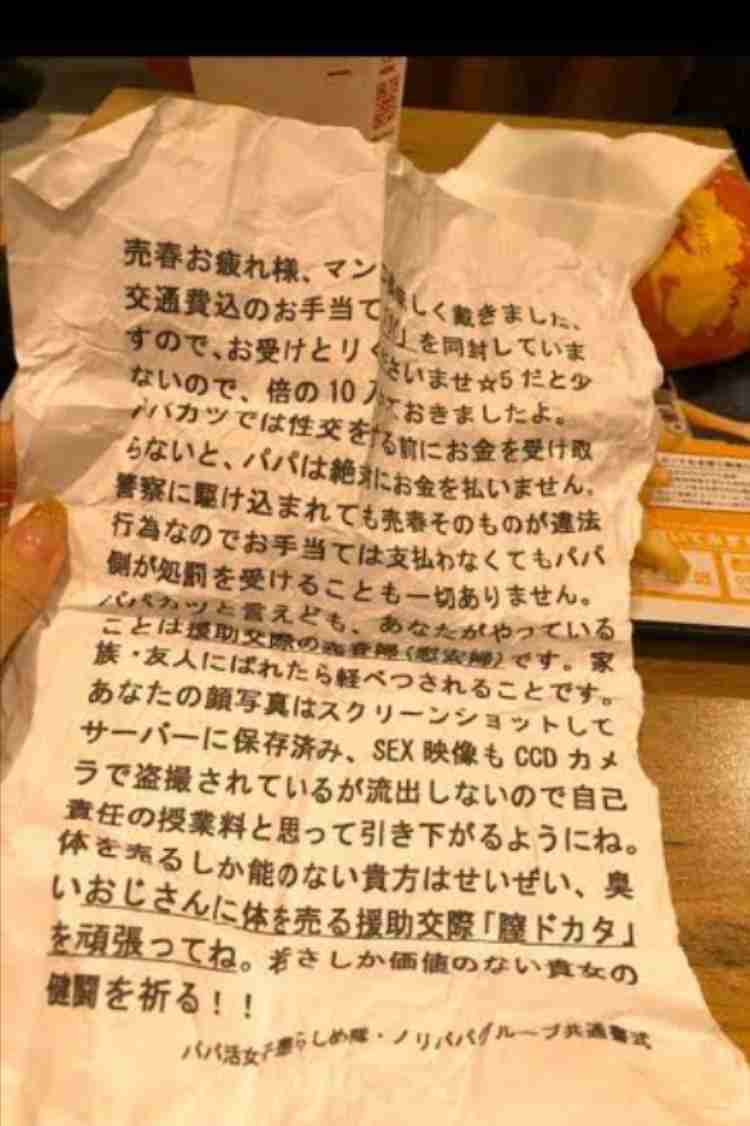 売春お疲れ様、マン 美味しく戴きました、
交通費込のお手当て 」を同封していま
すので、お受けとりくださいませ☆5だと少
ないので、倍の10入 ておきましたよ。
パパカツでは性交をする前にお金を受け取
らないと、パパは絶対にお金を払いません。
警察に駆け込まれても売春そのものが違法
行為なのでお手当ては支払わなくてもパパ
側が処罰を受けることも一切ありません。
パパカツと言えども、あなたがやっている
ことは援助交際の売春婦(慰安婦)です。家
族・友人にばれたら軽べつされることです。
あなたの顔写真はスクリーンショットして
サーバーに保存済み、SEX映像もCCDカメ
ラで盗撮されているが流出しないので自己
責任の授業料と思って引き下がるようにね。
体を売るしか能のない貴方はせいぜい、臭
いおじさんに体を売る援助交際「膣ドカタ」
を頑張ってね。若さしか価値のない貴女の
健闘を祈る!!
パパ活女子懲らしめ隊・ノリパパグループ共通書式